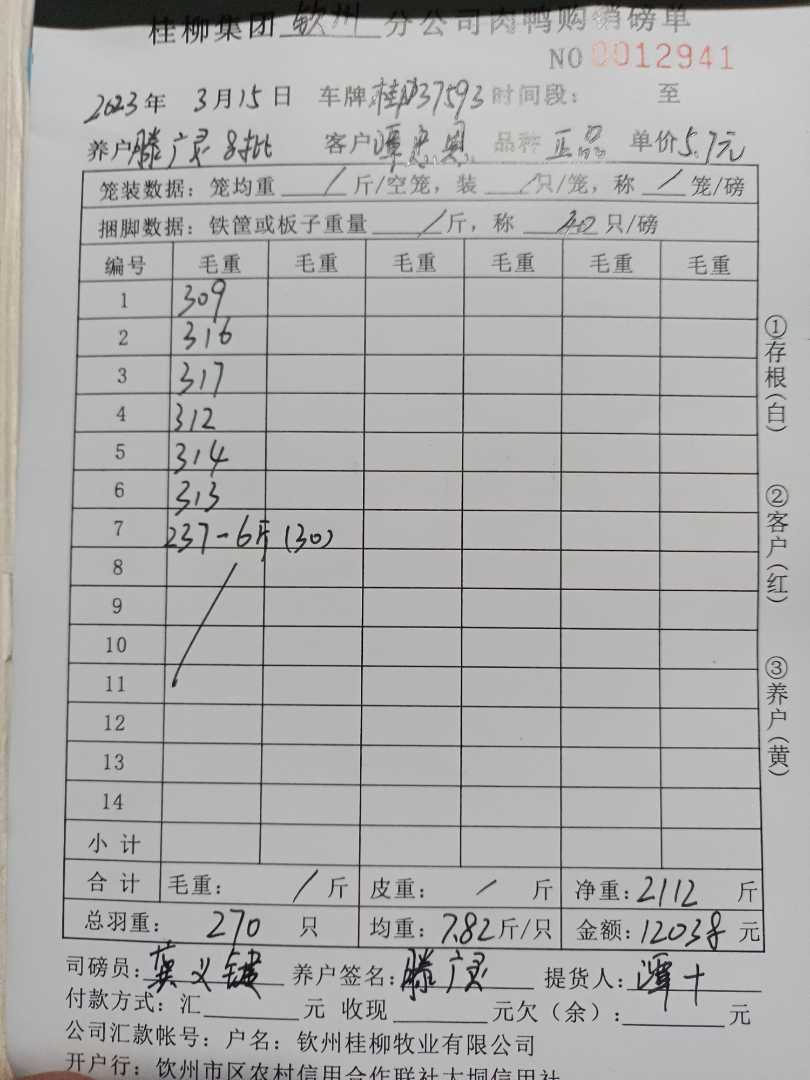 桂柳集团钦州分公司肉鸭购销磅单
NO 0012941
2023年 3月15日 车牌桂 37593 时间段： 至
养户滕广灵8批 客户谭 品种 正品 单价5.7元
笼装数据：笼均重 / 斤/空笼，装 / 只/笼，称 / 笼/磅
捆脚数据：铁筐或板子重量 / 斤，称 40 只/磅
编号 毛重 毛重 毛重 毛重 毛重 毛重
1 309
2 316
3 317
4 312
5 314
6 313
7 237-6斤(30)
8
9
10
11
12
13
14
小计
合计 毛重： / 斤 皮重： / 斤 净重：2112 斤
总羽重： 270 只 均重：7.82斤/只 金额：12038元
司磅员：龚义键 养户签名：滕广灵 提货人：谭十
付款方式：汇 元 收现 元欠（余）： 元
公司汇款帐号：户名：钦州桂柳牧业有限公司
开户行：钦州市区农村信用合作联社大垌信用社
①存根(白)
②客户(红)
③养户(黄)